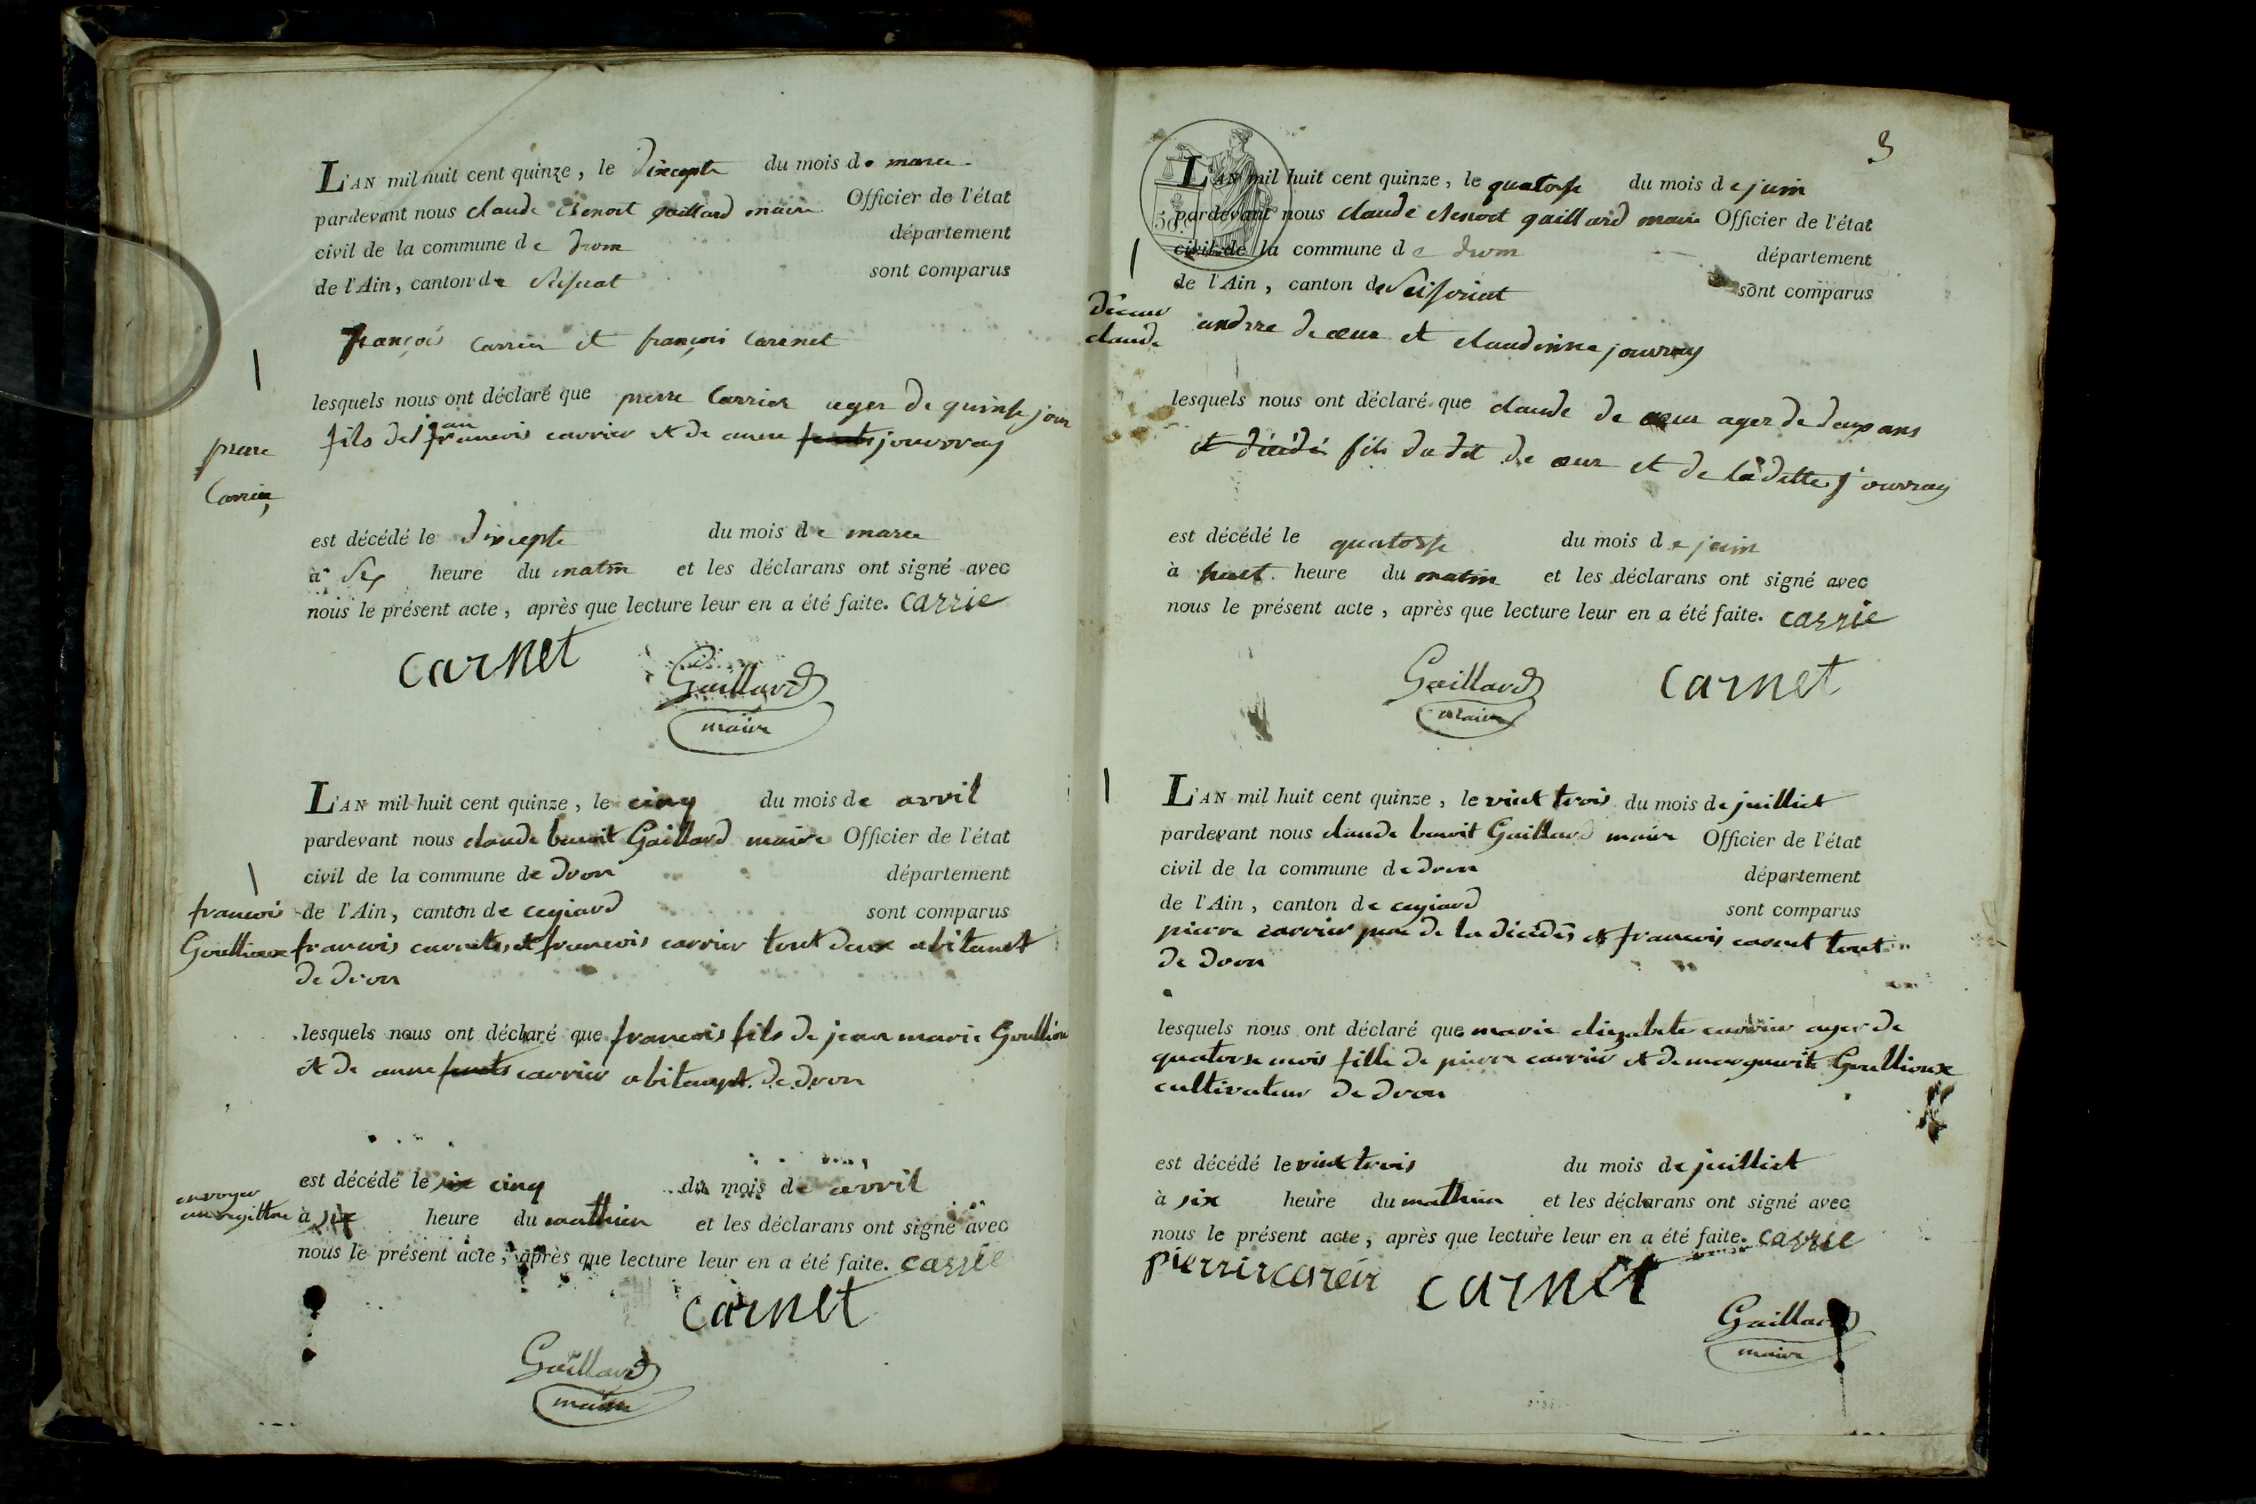 L'AN mil huit cent quinze, le dixcepte du mois de marce
pardevant nous claude benoit gaillard maire Officier de l'état
civil de la commune de drom département
de l'Ain, canton de sont comparus
françois Carrier et françois Carenet
lesquels nous ont déclaré que pierre Carrier ager de quinse jour
jan
fils de françois carrier et de anne jouvray
pierre
Carrier
est décédé le dixcepte du mois de marce
à heure du matin et les déclarans ont signé avec
nous le présent acte, après que lecture leur en a été faite. carrie
carnet
Gaillard
maire
L'AN mil huit cent quinze, le cinq du mois de avril
pardevant nous claude benoit Gaillard maire Officier de l'état
civil de la commune de dron département
francois de l'Ain, canton de ceyziard sont comparus
Goullioux francois carnet et francois carrier tout deux abitant
de dron
lesquels nous ont déclaré que francois fils de jean marie Goulliou
et de anne carrier abitant de dron
est décédé le six cinq du mois de avril
envoyer
à six heure du mathin et les déclarans ont signé avec
nous le présent acte, après que lecture leur en a été faite. carrie
carnet
Gaillard
maire
3
L'AN mil huit cent quinze, le quatorse du mois de juin
pardevant nous claude benoit gaillard maire Officier de l'état
civil de la commune de drom département
de l'Ain, canton de sont comparus
decœur
claude
andrre de cœur et claudinne jouvray
lesquels nous ont déclaré que claude de cœur ager de deux ans
et décédé fils du dit de cœur et de la ditte jouvray
est décédé le quatorse du mois de juin
à huit heure du matin et les déclarans ont signé avec
nous le présent acte, après que lecture leur en a été faite. carrie
Gaillard carnet
maire
L'AN mil huit cent quinze, le vint trois du mois de juilliet
pardevant nous claude benoit Gaillard maire Officier de l'état
civil de la commune de dron département
de l'Ain, canton de ceyziard sont comparus
pierre carrier pere de la décédé et francois carnet tout
de dron
lesquels nous ont déclaré que marie elizabete carrier ager de
quatorse mois fille de pierre carrier et de marguerite Goullioux
cultivateur de dron
est décédé le vint trois du mois de juilliet
à six heure du mathin et les déclarans ont signé avec
nous le présent acte, après que lecture leur en a été faite. carrie
pierrir careir carnet
Gaillard
maire